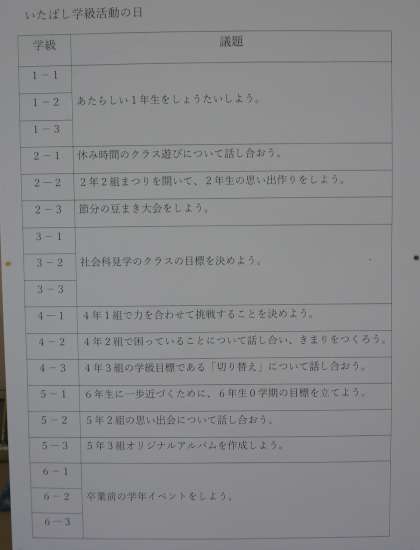 いたばし学級活動の日
学級 議題
1－1
1－2 あたらしい１年生をしょうたいしよう。
1－3
2－1 休み時間のクラス遊びについて話し合おう。
2－2 ２年２組まつりを開いて、２年生の思い出作りをしよう。
2－3 節分の豆まき大会をしよう。
3－1
3－2 社会科見学のクラスの目標を決めよう。
3－3
4－1 ４年１組で力を合わせて挑戦することを決めよう。
4－2 ４年２組で困っていることについて話し合い、きまりをつくろう。
4－3 ４年３組の学級目標である「切り替え」について話し合おう。
5－1 ６年生に一歩近づくために、６年生０学期の目標を立てよう。
5－2 ５年２組の思い出会について話し合おう。
5－3 ５年３組オリジナルアルバムを作成しよう。
6－1
6－2 卒業前の学年イベントをしよう。
6－3